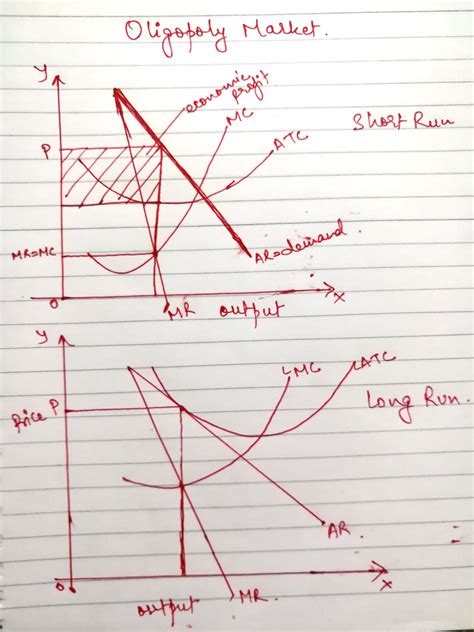 Oligopoly Market.
Y
economic
profit
MC
ATC
Short Run
P
MR=MC
AR=demand.
O
MR
output
X
Y
LMC
LATC
Long Run.
Price P
AR.
O
X
output
MR.